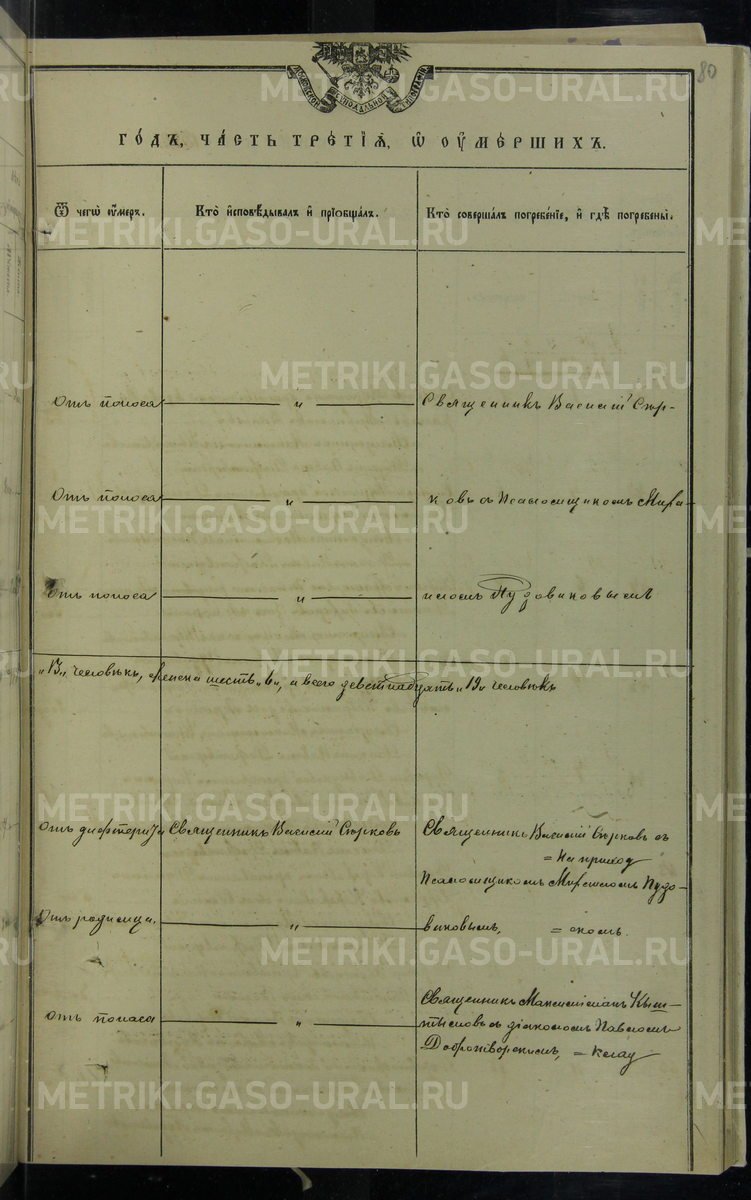 80
ГО́ДЪ, ЧА́СТЬ ТРЕ́ТІЯ, Ѡ ОУ҆МЕ́РШИХЪ.
Ѿ чегѡ̀ ᲂу҆́меръ.
Кто̀ и҆сповѣ́дывалъ и҆ прїѡбща́лъ.
Кто̀ соверша́лъ погребе́нїе, и҆ гдѣ̀ погребены̀.
Отъ поноса — „ — Священникъ Василій Сѣр-
Отъ поноса — „ — ковъ съ Псаломщикомъ Миха-
Отъ поноса — „ — иломъ Пудовиковымъ
„13„ человѣкъ, женска шесть „6„, а всего девятнадцать „19„ человѣкъ
Отъ дифтерита Священникъ Василій Сѣрковъ Священникъ Василій Сѣрковъ съ
= На приход
Псаломщикомъ Михаиломъ Пудо-
Отъ родимца. — „ — виковымъ, = скомъ.
Священникъ Максимиліанъ
Отъ поноса — „ — съ діакономъ Павломъ
Добротворскимъ, = клад
METRIKI.GASO-URAL.RU